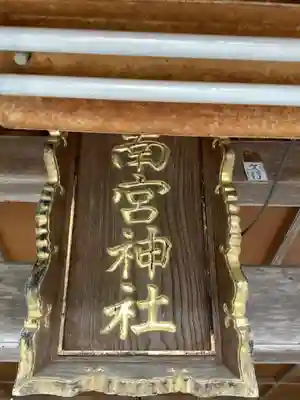 南宮神社